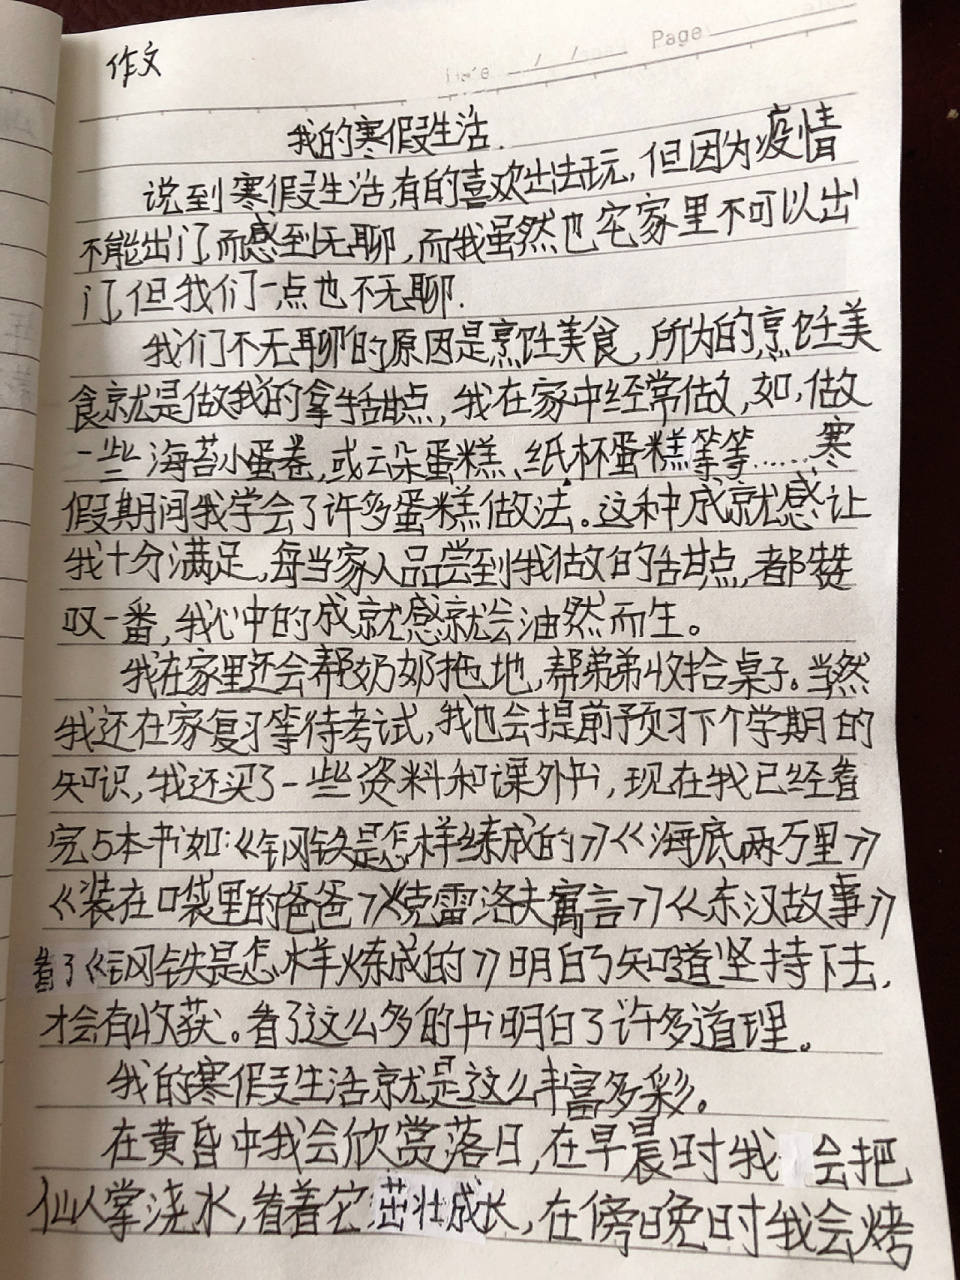 作文
Date / / Page
我的寒假生活.
说到寒假生活,有的喜欢出去玩,但因为疫情
不能出门,而感到无聊,而我虽然也宅家里不可以出
门,但我们一点也不无聊.
我们不无聊的原因是烹饪美食,所为的烹饪美
食就是做我的拿手甜点,我在家中经常做,如,做
一些海苔小蛋卷,或云朵蛋糕、纸杯蛋糕等等……寒
假期间我学会了许多蛋糕做法。这种成就感让
我十分满足,每当家人品尝到我做的甜点,都赞
叹一番,我心中的成就感就会油然而生。
我在家里还会帮奶奶拖地,帮弟弟收拾桌子。当然
我还在家复习等待考试,我也会提前预习下个学期的
知识,我还买了一些资料和课外书,现在我已经看
完5本书如:《钢铁是怎样练成的》《海底两万里》
《装在口袋里的爸爸》《克雷洛夫寓言》《东汉故事》
看了《钢铁是怎样炼成的》明白了知道坚持下去,
才会有收获。看了这么多的书明白了许多道理。
我的寒假生活就是这么丰富多彩。
在黄昏中我会欣赏落日,在早晨时我会把
仙人掌浇水,看着它茁壮成长,在傍晚时我会烤